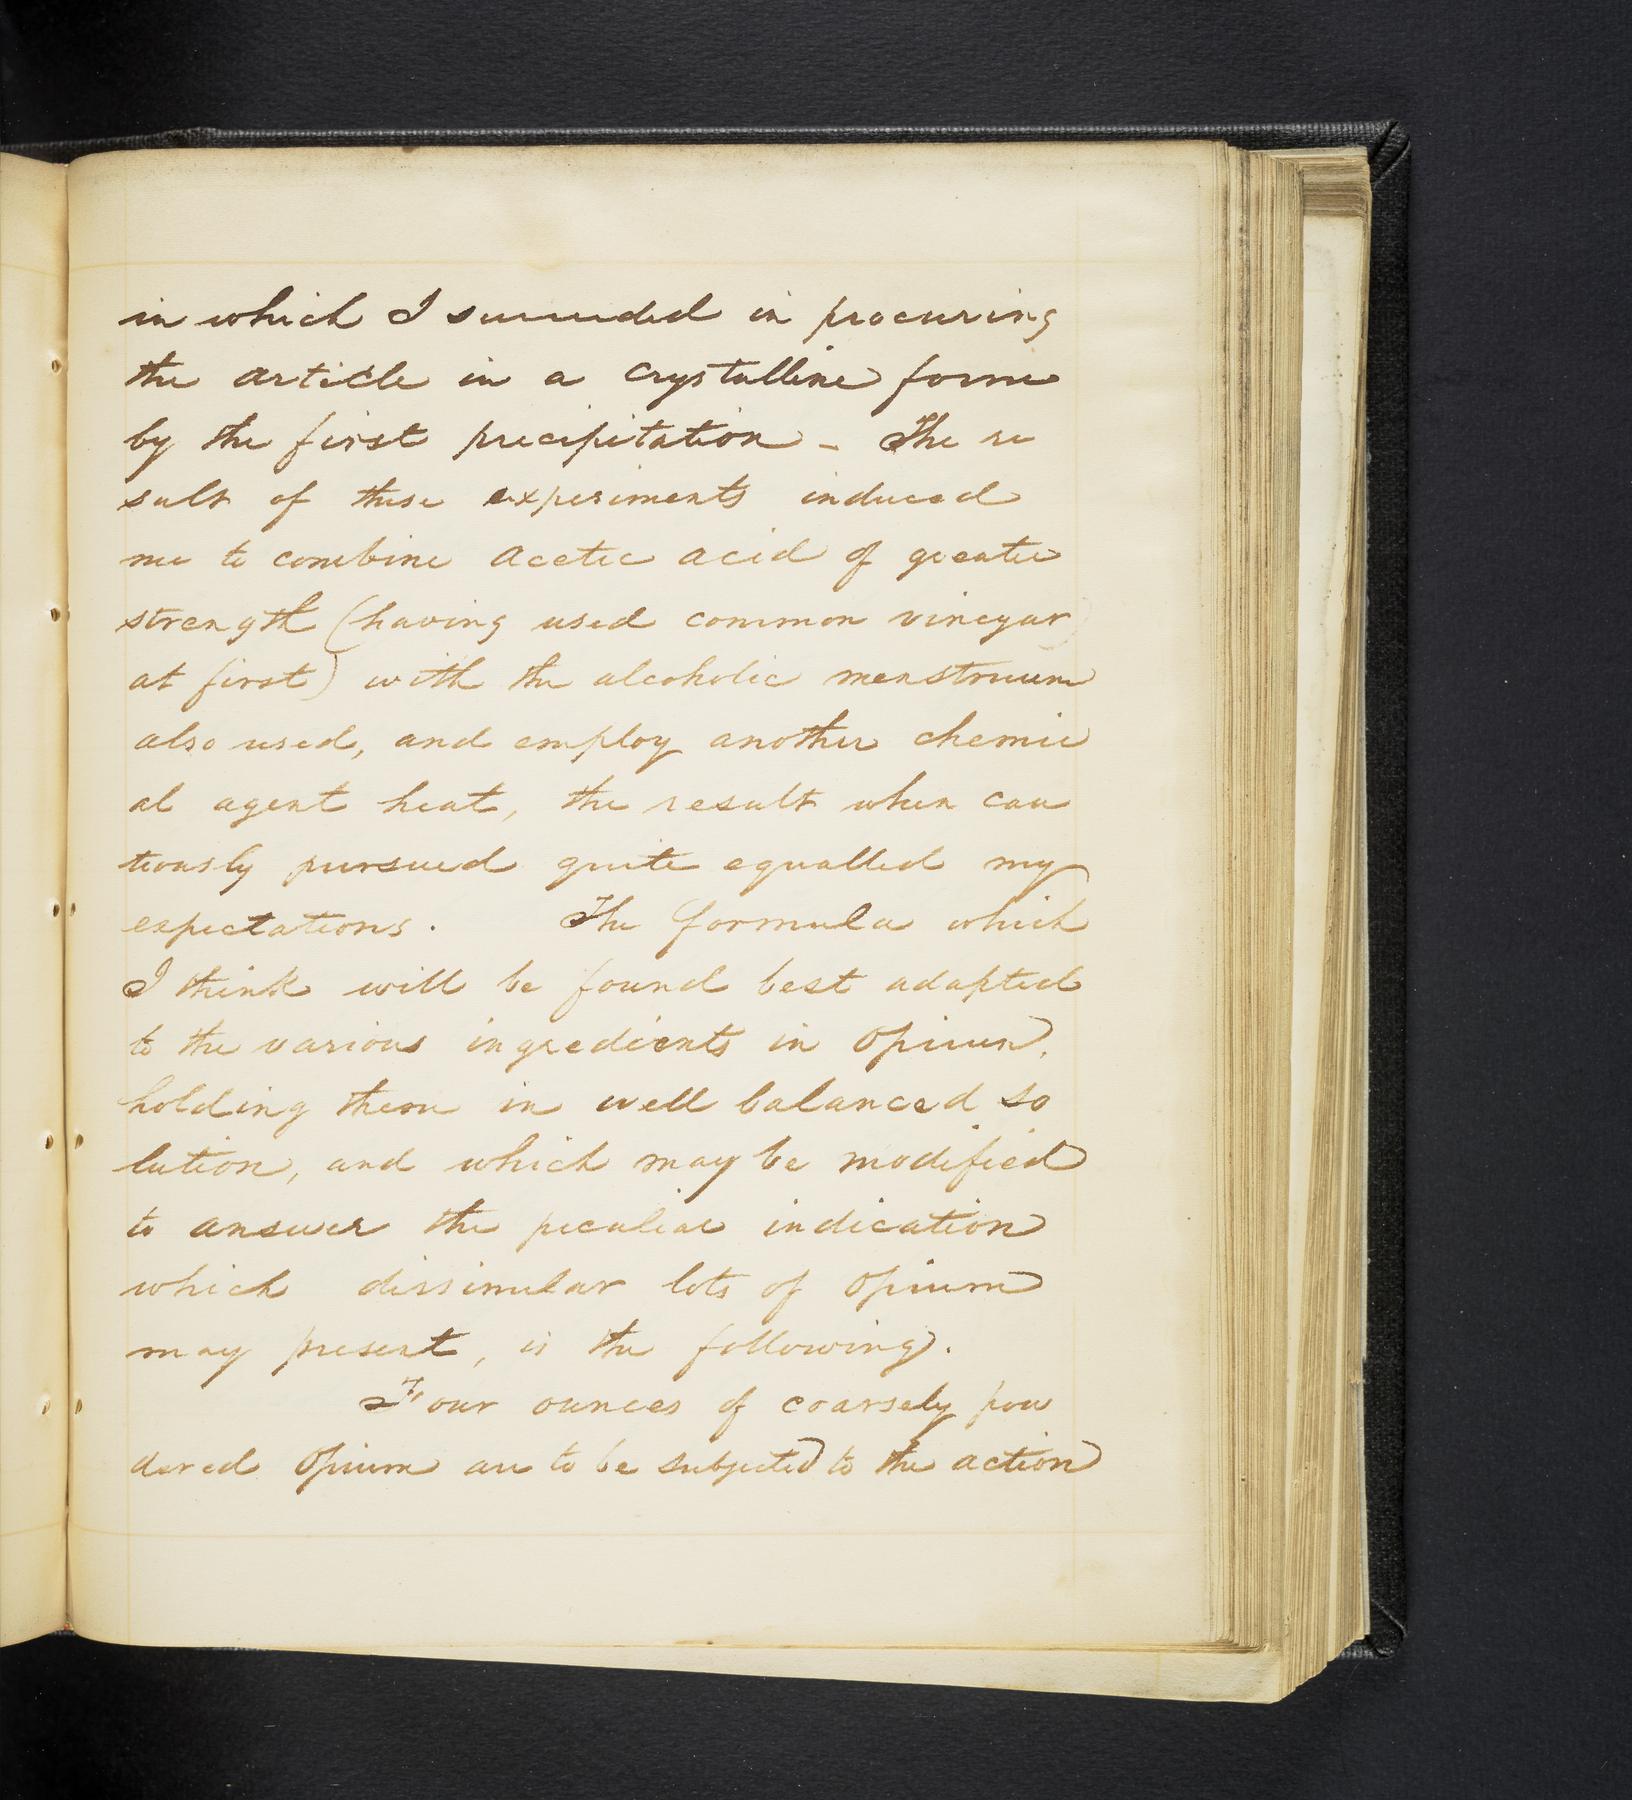 in which I succeeded in procuring
the article in a crystalline form
by the first precipitation - The re
sult of these experiments induced
me to combine acetic acid of greater
strength (having used common vinegar
at first) with the alcoholic menstruum
also used, and employ another chemic
al agent heat, the result when cau
tiously pursued quite equalled my
expectations. The formula which
I think will be found best adapted
to the various ingredients in Opium,
holding them in well balanced so
lution, and which may be modified
to answer the peculiar indication
which dissimular lots of Opium
may present, is the following.
Four ounces of coarsely pow
dered Opium are to be subjected to the action